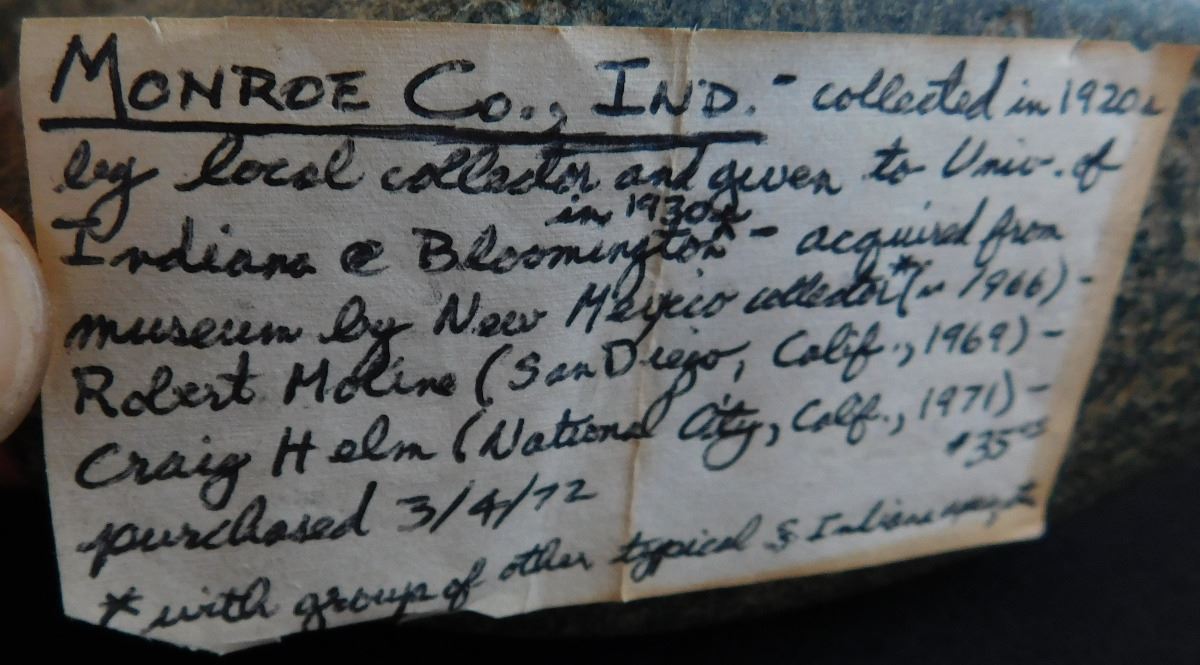 MONROE Co., IND. - collected in 1920s
by local collector and given to Univ. of
in 1930s
Indiana @ Bloomington ^ - acquired from
museum by New Mexico collector* (in 1966) -
Robert Moline (San Diego, Calif., 1969) -
Craig Helm (National City, Calif., 1971) -
purchased 3/4/72 $35
* with group of other typical S Indiana